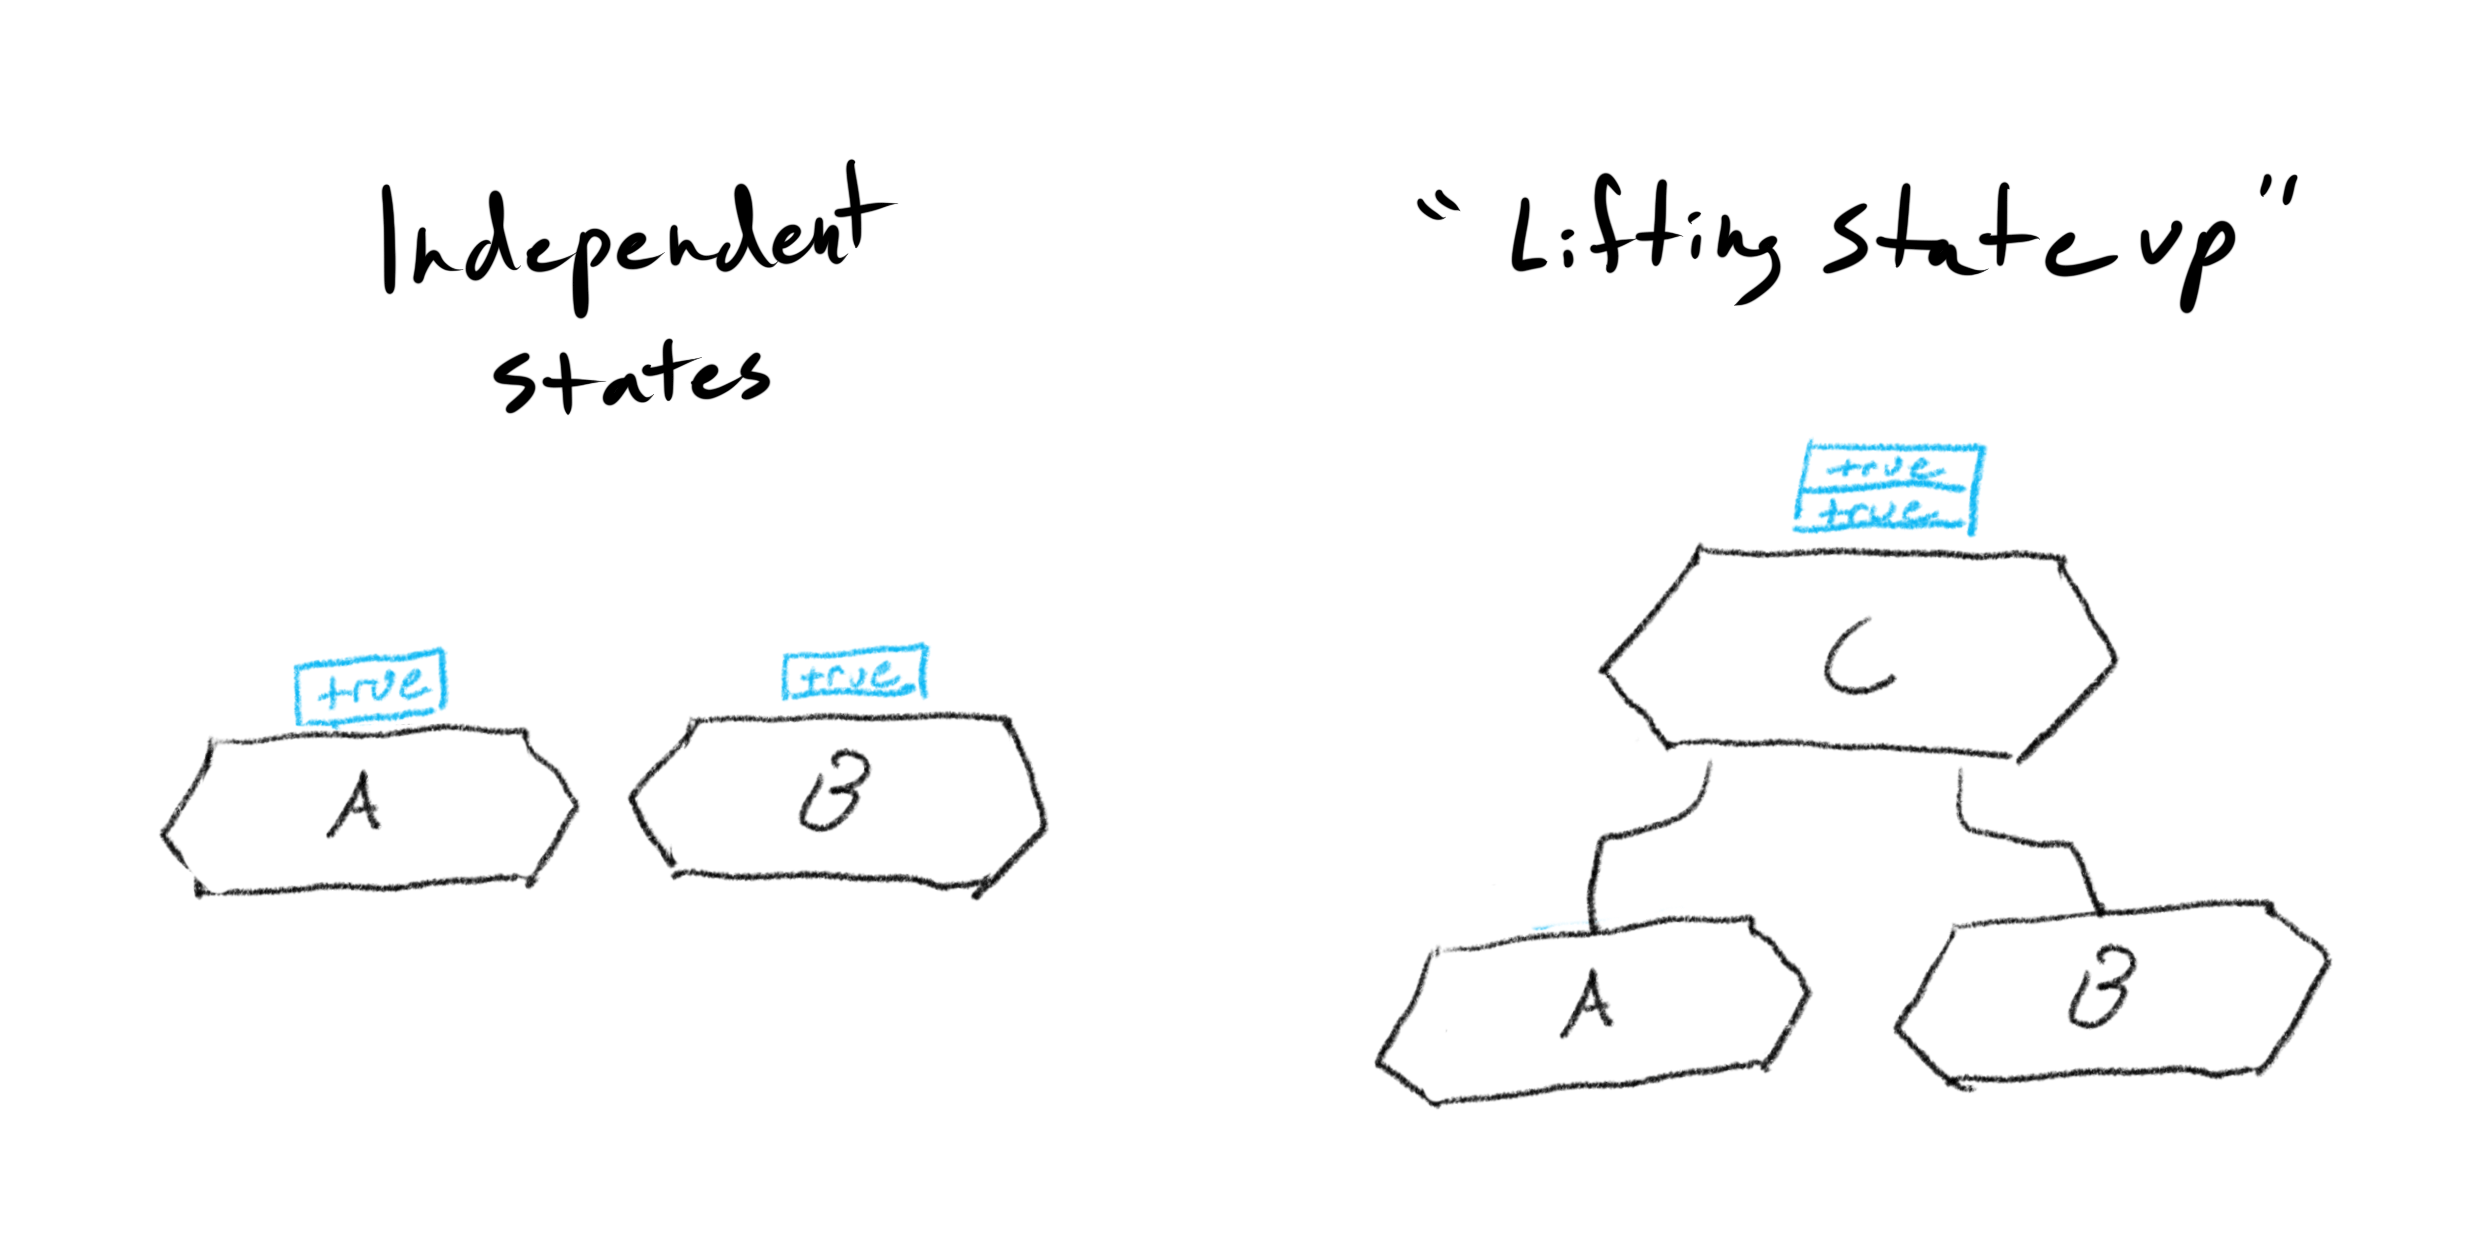 Independent
states
true
true
A
B
"Lifting state up"
true
true
C
A
B